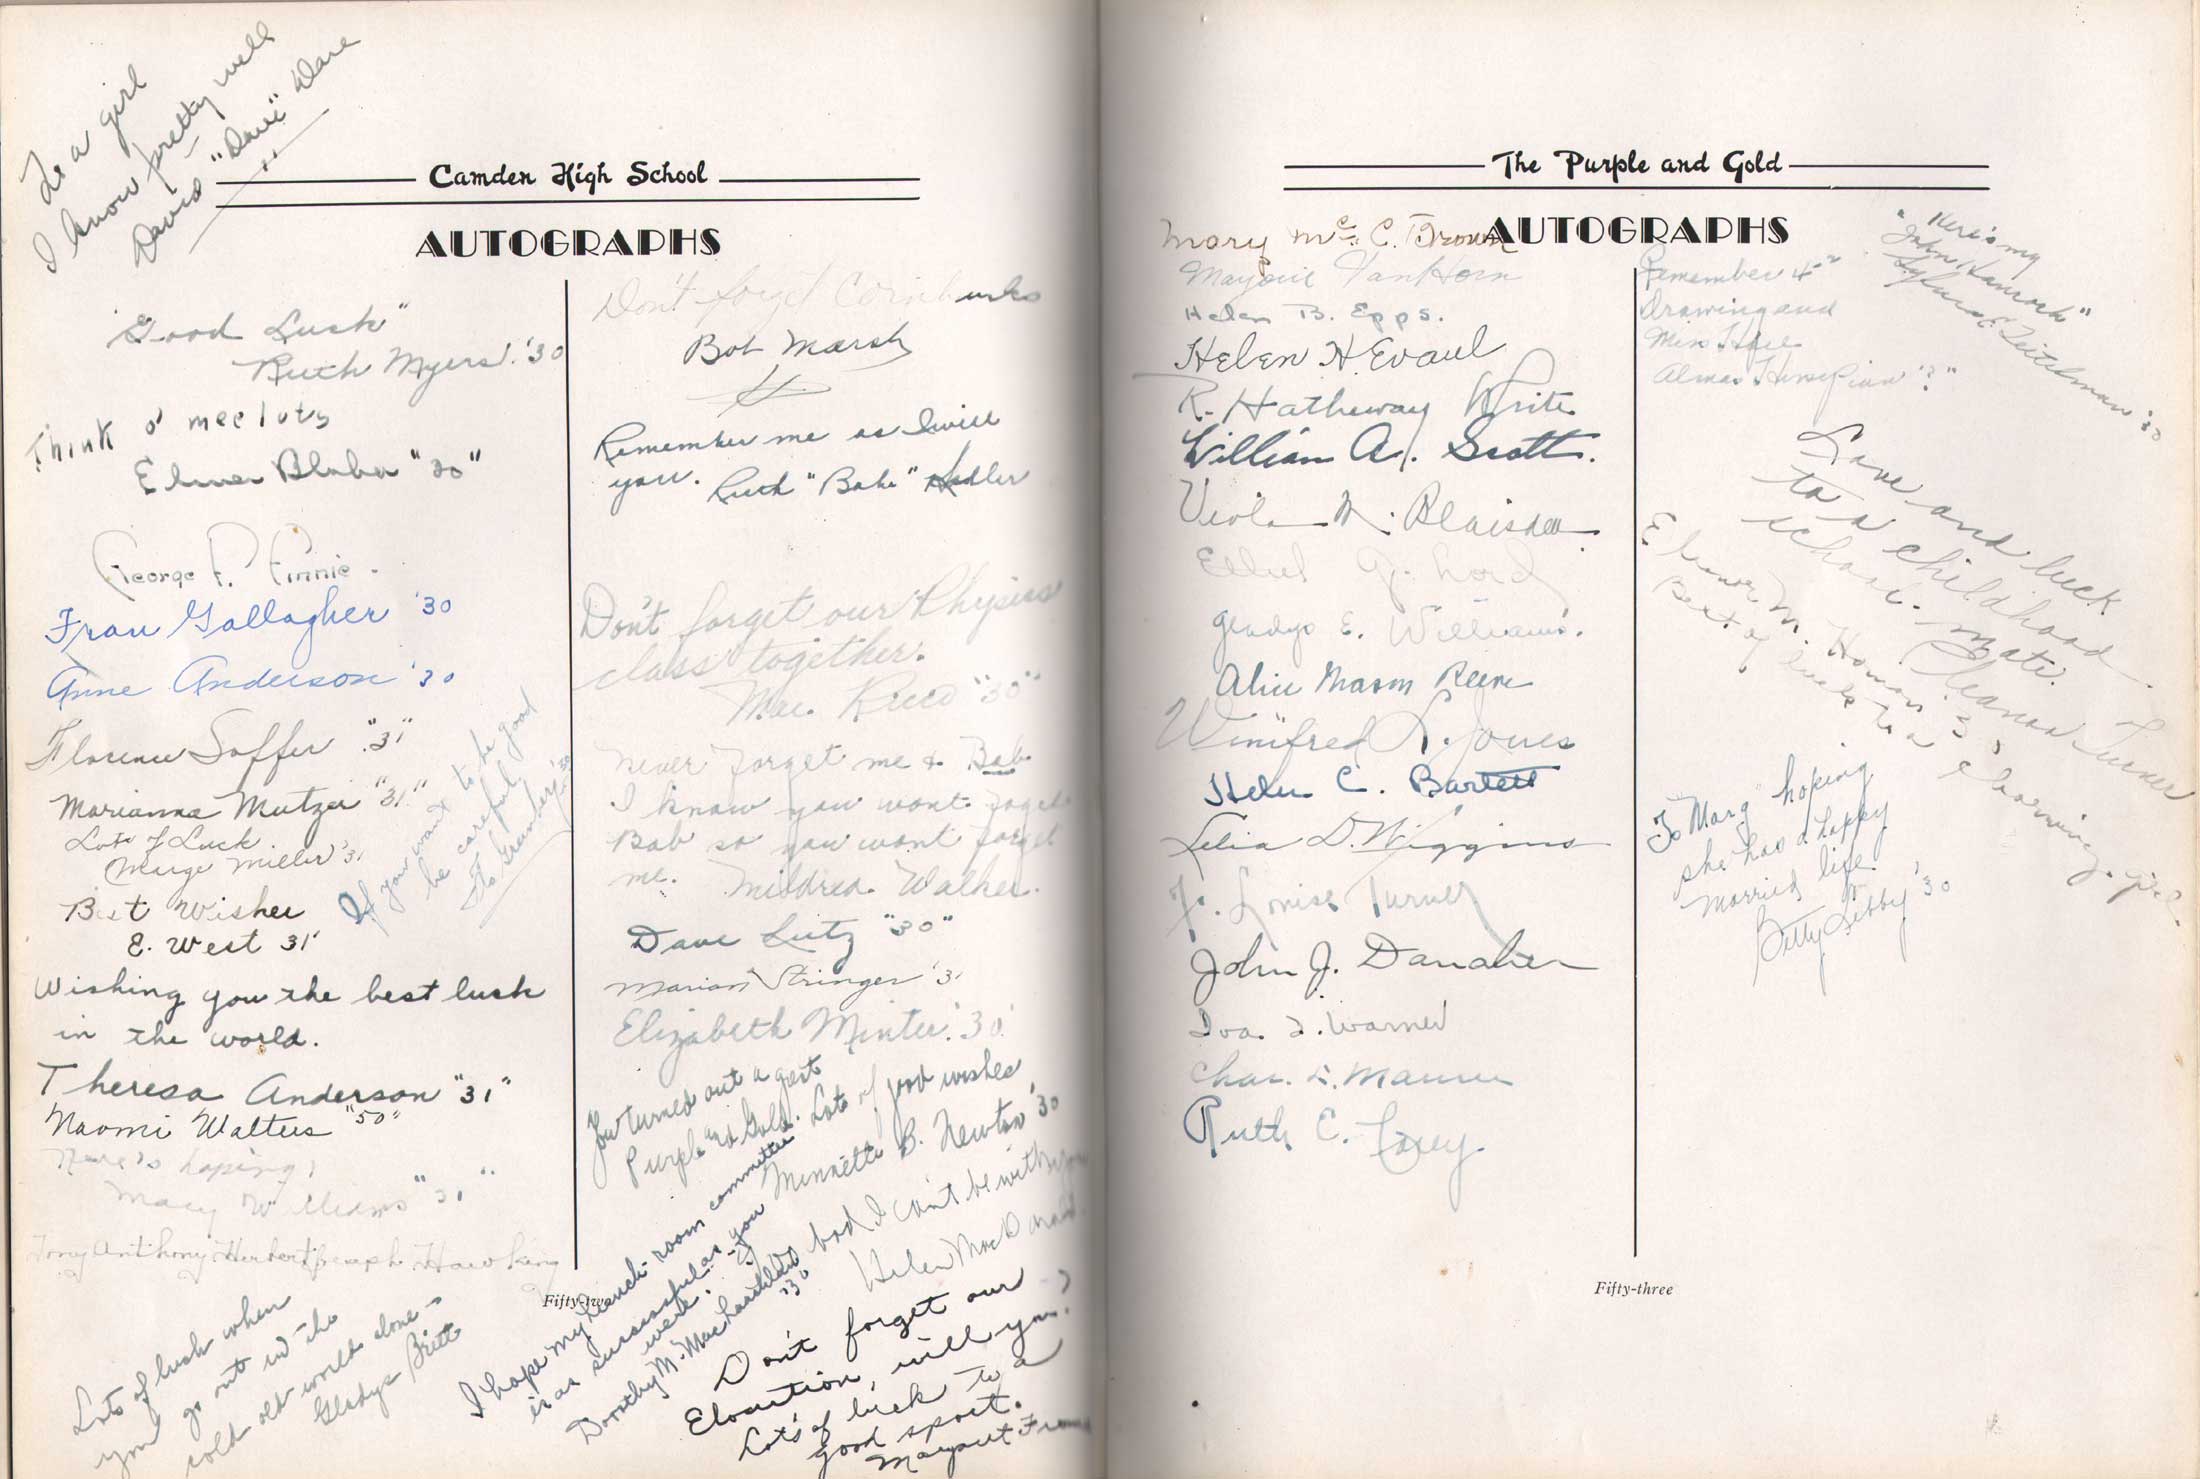 To a girl
I know pretty well
David "Dave" Dare
Camden High School
AUTOGRAPHS
Good Luck"
Ruth Myers. '30
Think o' mee lots
Elmer "30"
George F. Finnie.
Fran Gallagher '30
Anne Anderson '30
Florence Soffer "31"
Marianna "31"
Lots of Luck
Marge Miller '31
Best Wishes
E. West 31'
If you want to be good
be careful
Wishing you the best luck
in the world.
Theresa Anderson "31"
Naomi Walters "50"
Here's hoping,
Mary Williams "31"
Tony Anthony Herbert Joseph Hawking
Lots of luck when
you go out in the
cold old world alone-
Gladys Britt
Fifty-two
Don't forget
Bob Marsh
Remember me as I will
you. Ruth "Babe"
Don't forget our Physics
class together.
Mae Reed "30"
Never forget me & Bab
I know you wont forget
Bab so you wont forget
me. Mildred Walker.
Dave Lutz "30"
Marian Stringer '31
Elizabeth Minter '30.
You turned out a great
Purple and Gold. Lots of good wishes
Minnette B. Newton '30
I hope my lunch-room committee
is as successful as you
were.
Dorothy M. '30
bad I can't be with you
Helen MacDonald.
Don't forget our
Elocution, will you?
Lots of luck to a
good sport.
Margaret
The Purple and Gold
AUTOGRAPHS
Mary McC. Brown
Marjorie VanHorn
Helen B. Epps.
Helen H Evaul
R. Hatheway
William A. Scott.
Viola M. Blaisdell
Ethel G. Lord
Gladys E. Williams.
Alice Mason Reeve
Winifred L. Jones
Helen C. Bartlett
Lelia D. Wiggins
Louise Turner
John J. Danaher
Iva I. Warner
Chas. L. Maurer
Ruth C. Loxey.
Remember 4th
Drawing and
Miss
Alma
"Here's my
John Hancock"
Sylvia E. Teitelman '30
Love and luck
to a childhood
school-mate.
Eleanor Turner
Eleanor M.
Best of luck to a charming girl.
To Marg hoping
she has a happy
married life
Betty Libby '30
Fifty-three